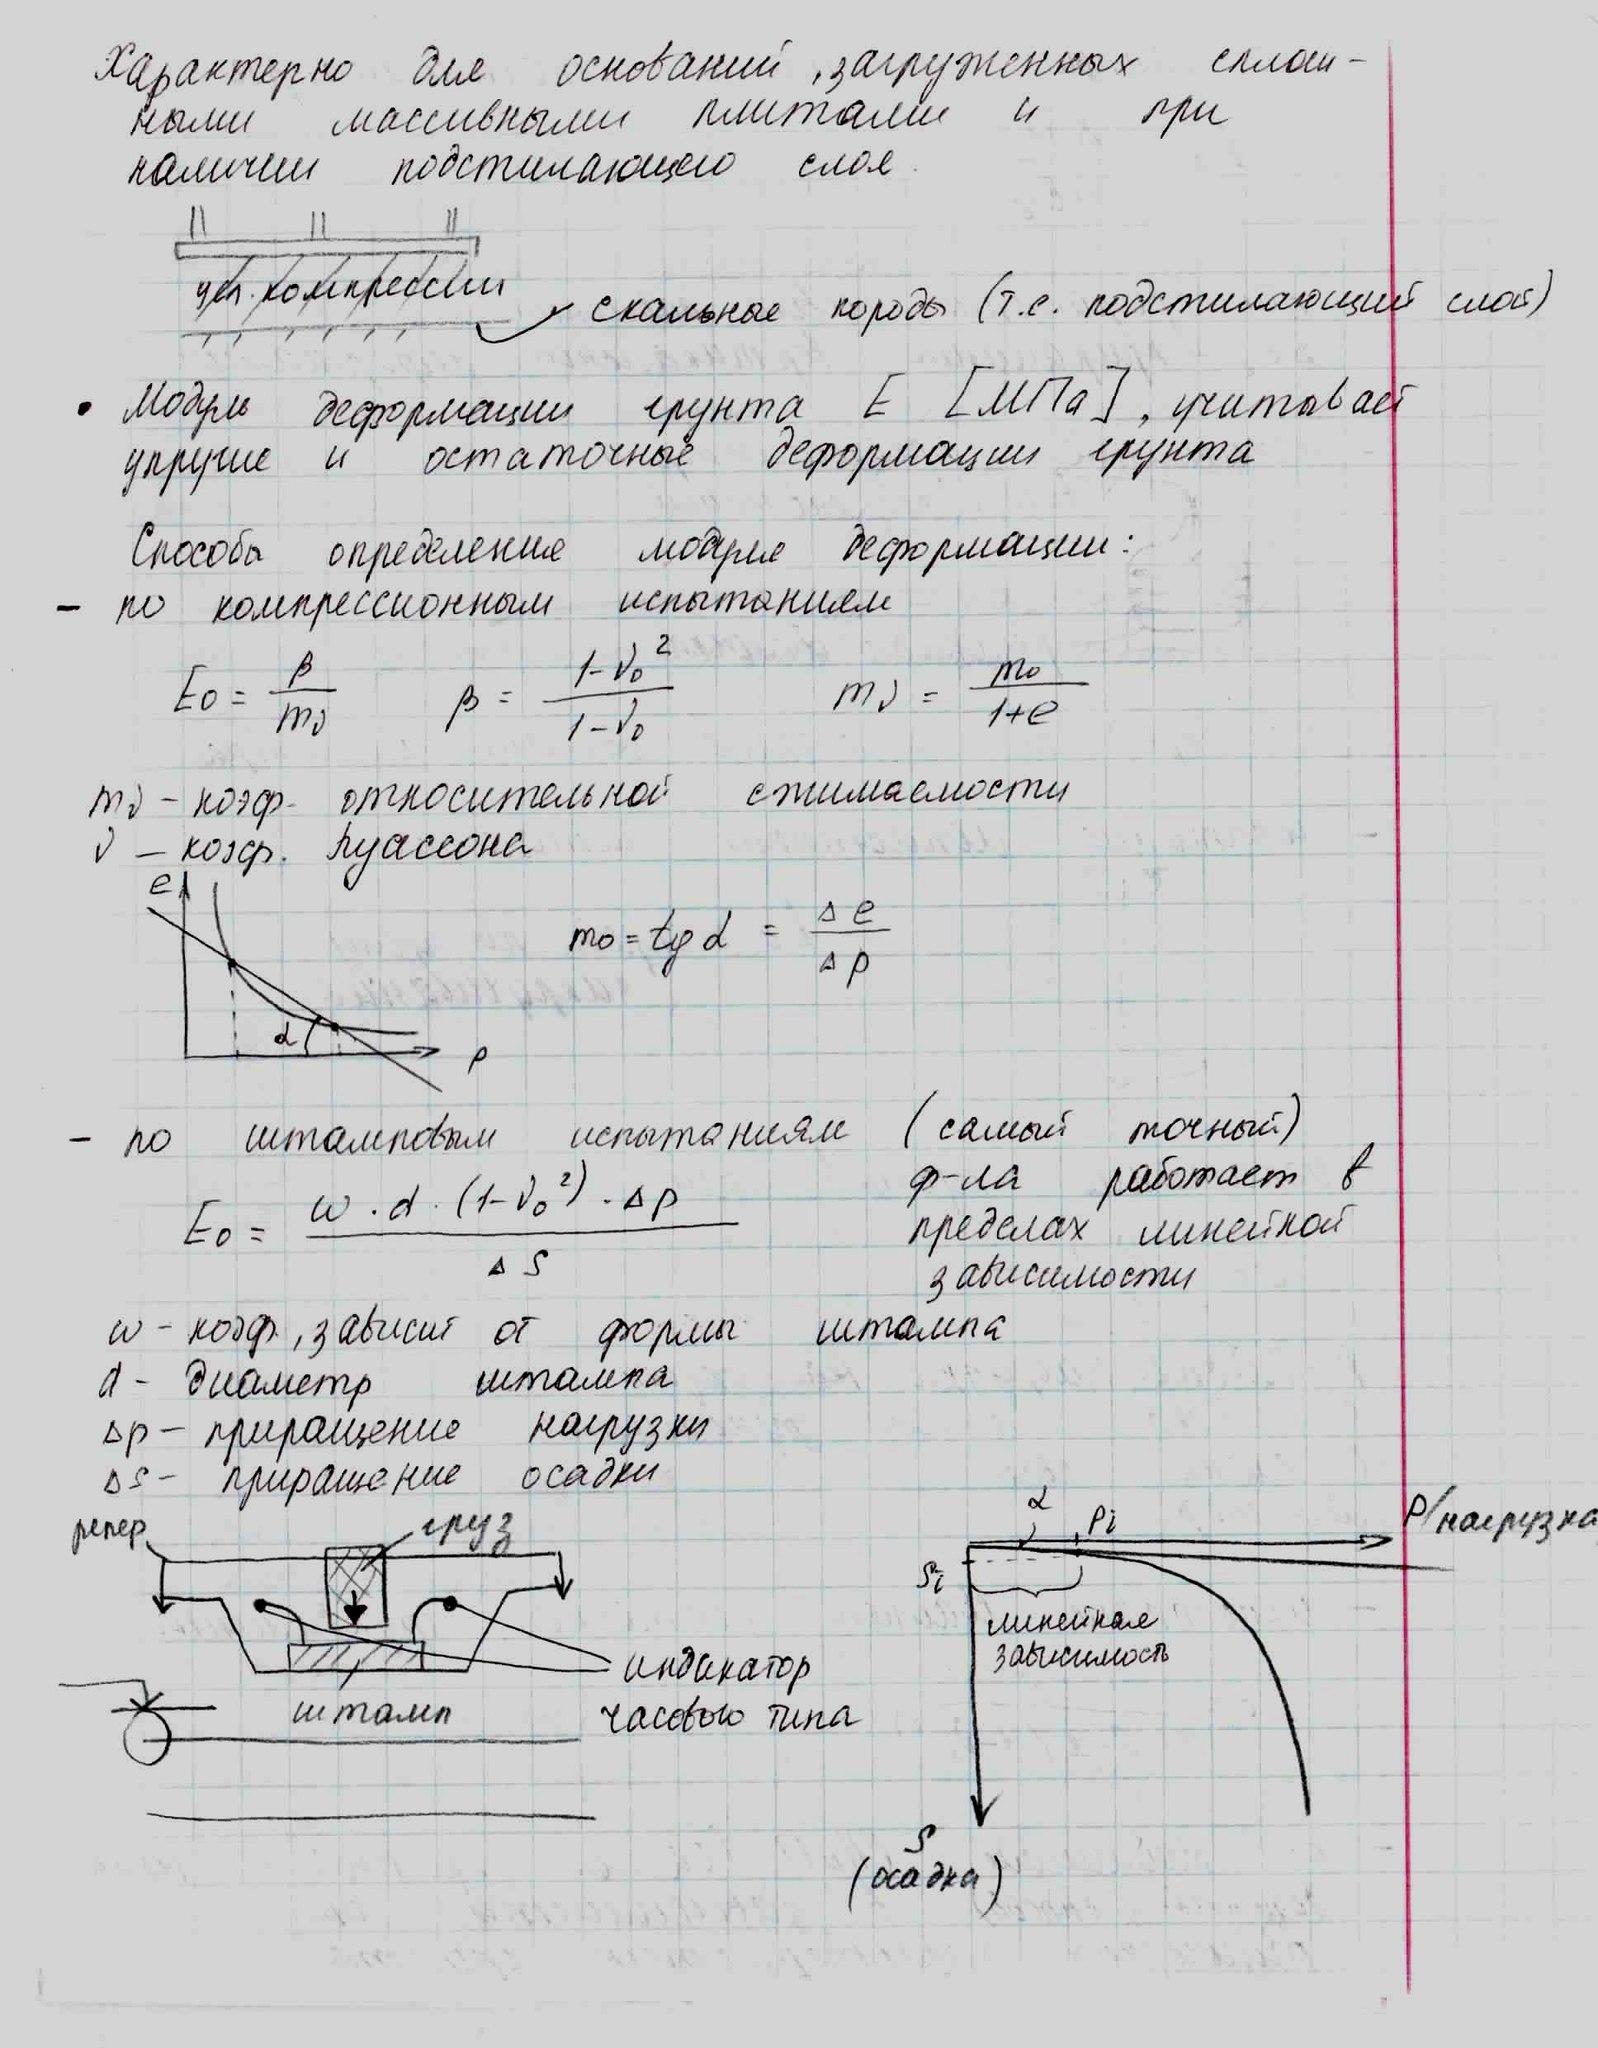 Характерно для оснований, загруженных сплош-
ными массивными плитами и при
наличии подстилающего слоя.
усл. компрессии
скальные породы (т.е. подстилающий слой)
• Модуль деформации грунта E [МПа], учитывает
упругие и остаточные деформации грунта
Способы определения модуля деформации:
– по компрессионным испытаниям
E₀ = β / mν   β = (1-ν₀²) / (1-ν₀)   mν = m₀ / (1+e)
mν – коэф. относительной сжимаемости
ν – коэф. Пуассона
e
m₀ = tg α = Δe / Δp
α
p
– по штамповым испытаниям (самый точный)
ф-ла работает в
пределах линейной
зависимости
E₀ = ω · d · (1-ν₀²) · Δp / ΔS
ω – коэф, зависит от формы штампа
d – диаметр штампа
Δp – приращение нагрузки
ΔS – приращение осадки
репер
груз
штамп
индикатор
часового типа
α
Pi
P/нагрузка
Si
линейная
зависимость
S
(осадка)